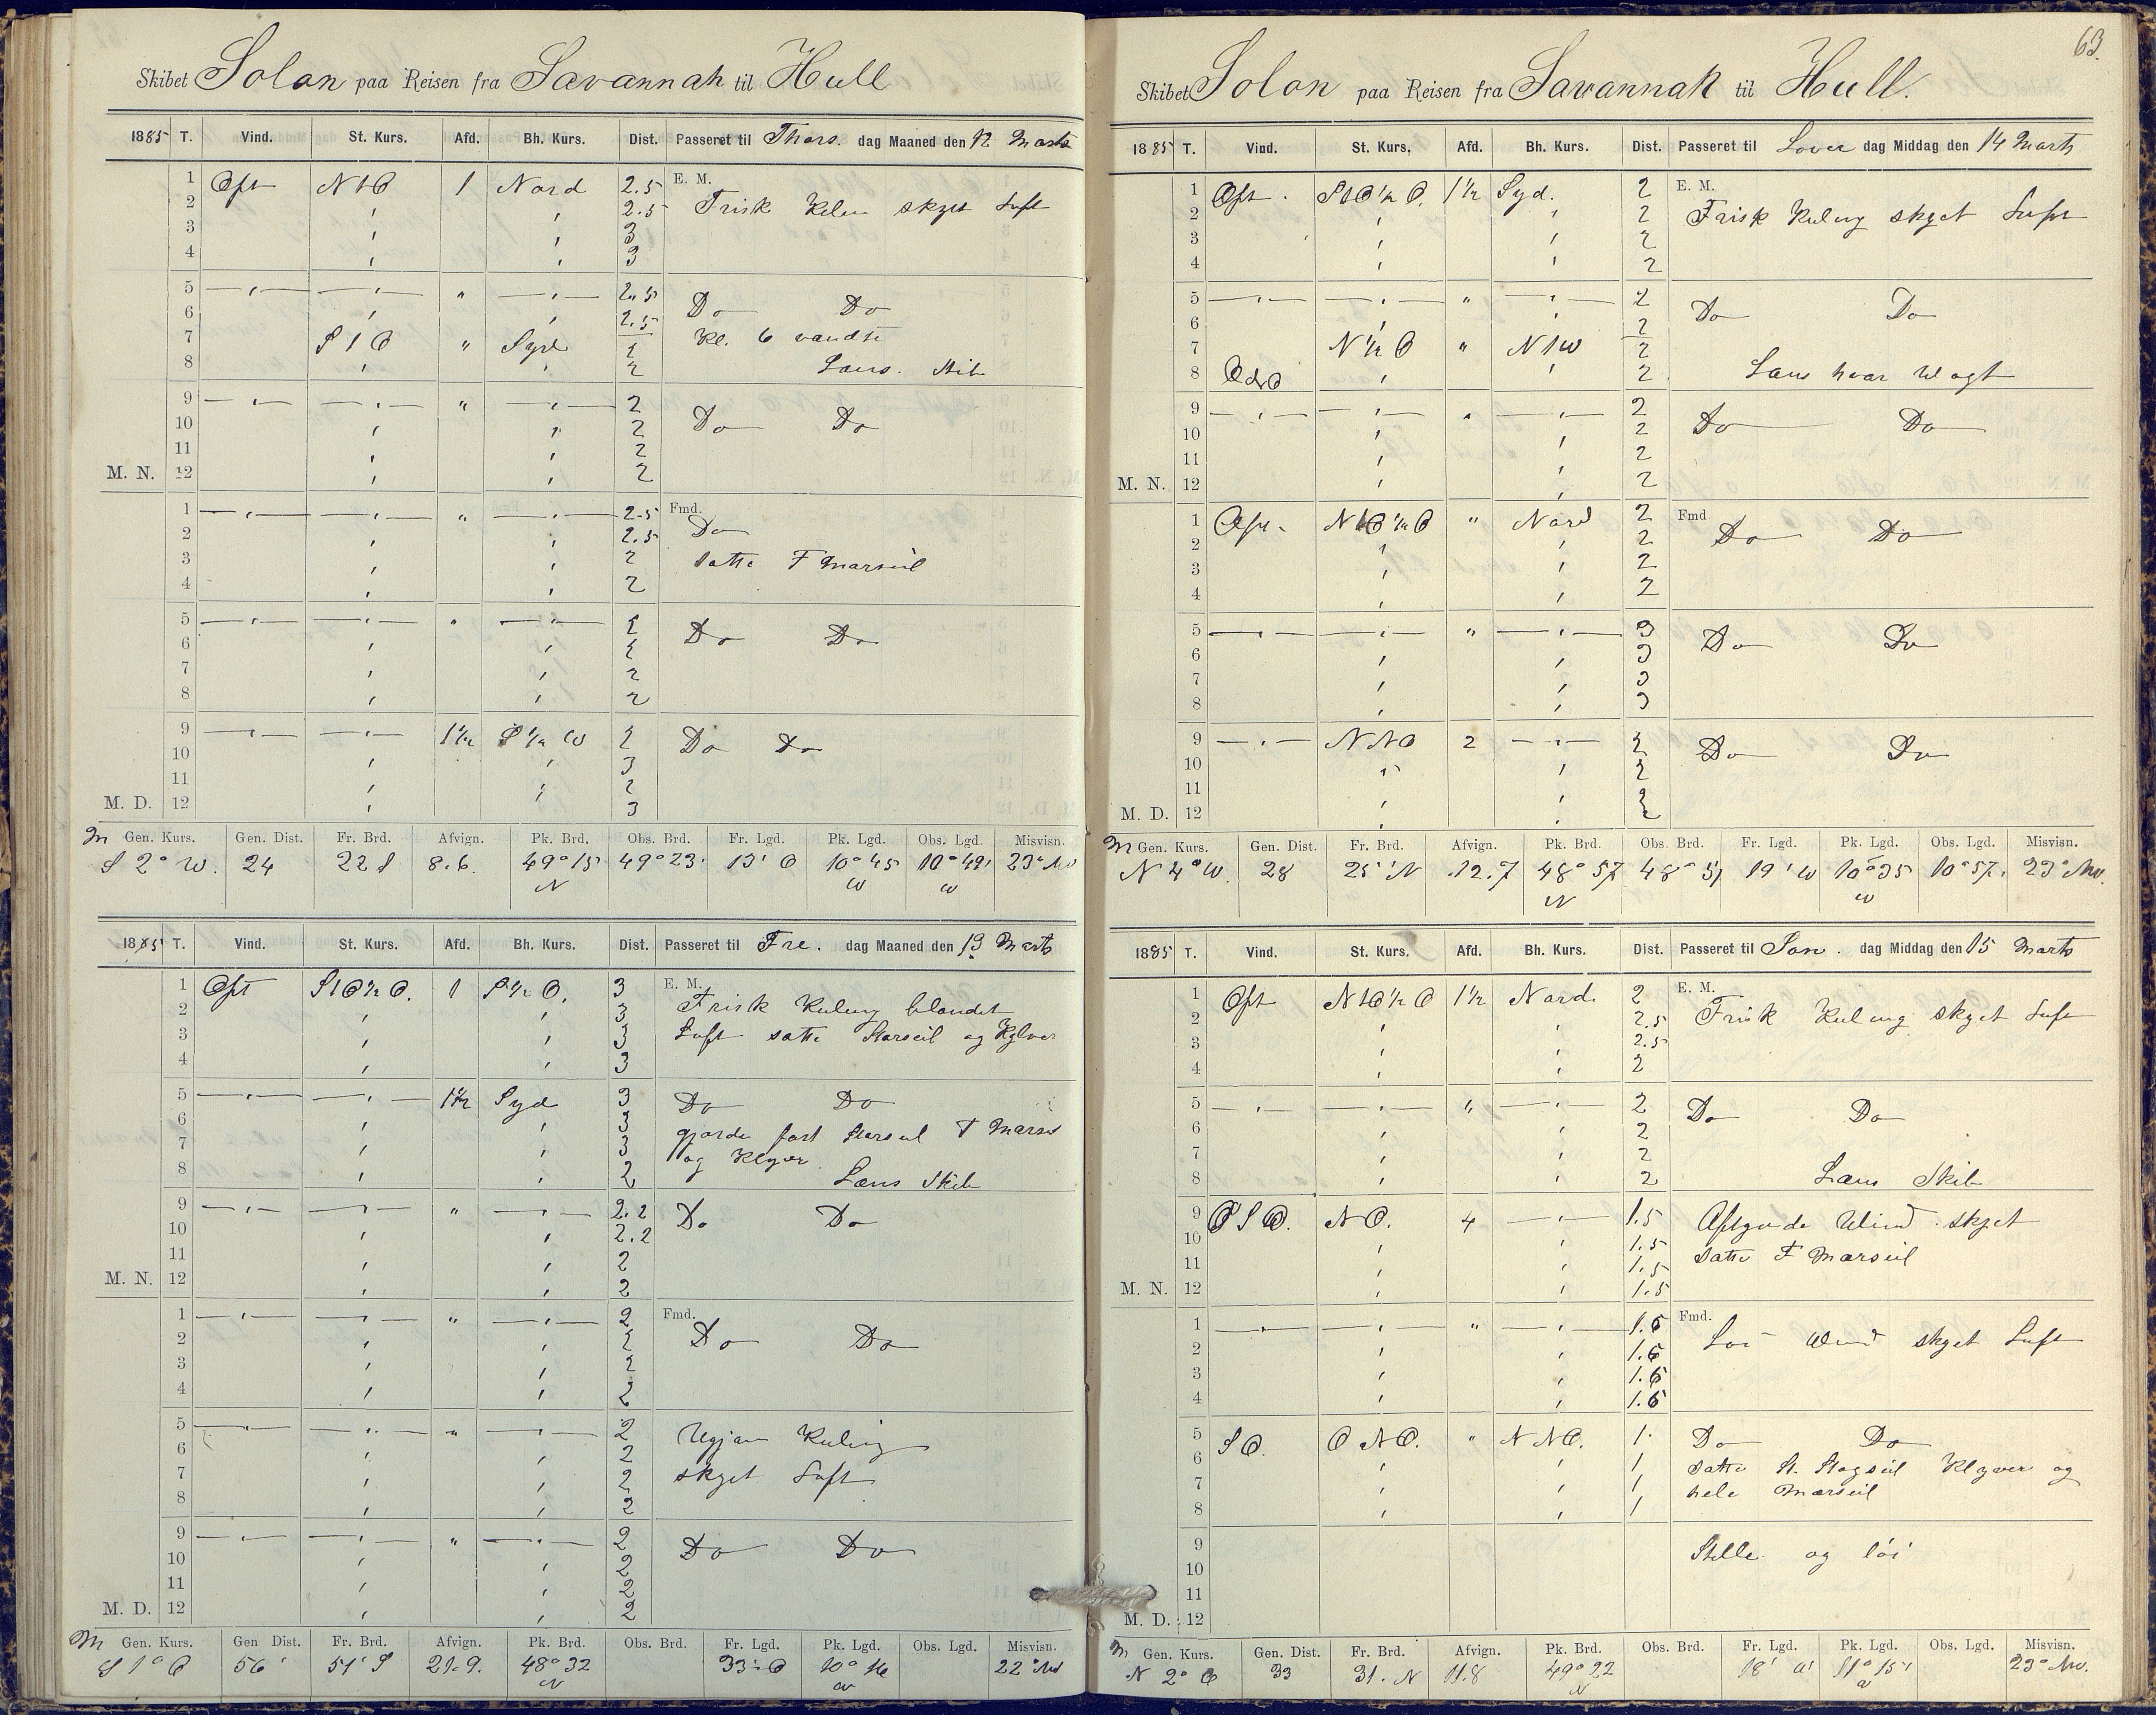 Skibet Solon paa Reisen fra Savannah til Hull
1885 T. Vind. St. Kurs. Afd. Bh. Kurs. Dist. Passeret til Thors. dag Maaned den 12 Marts
1 Ost N t O 1 Nord 2.5 E. M.
2 " " 2.5 Frisk Kuling skyet Luft
3 " " 3
4 " " 3
5 —"— —"— " —"— 2.5
6 " " 2.5 Do Do
7 S t O " Syd 2 Kl. 6 vendte
8 " " 2 Lens. Skib
9 —"— —"— " —"— 2
10 " " 2 Do Do
11 " " 2
M. N. 12 " " 2
1 —"— —"— " —"— 2.5 Fmd.
2 " " 2.5 Do
3 " " 2 satte F Marseil
4 " " 2
5 —"— —"— " —"— 2
6 " " 2 Do Do
7 " " 2
8 " " 2
9 —"— —"— 1½ S ½ W 2
10 " " 3 Do Do
11 " " 2
M. D. 12 " " 3
M Gen. Kurs. Gen. Dist. Fr. Brd. Afvign. Pk. Brd. Obs. Brd. Fr. Lgd. Pk. Lgd. Obs. Lgd. Misvisn.
S 2° W. 24 22 S 8.6. 49° 15 N 49° 23' 13' O 10° 45 W 10° 49' W 23° NW
1885 T. Vind. St. Kurs. Afd. Bh. Kurs. Dist. Passeret til Fre. dag Maaned den 13 Marts
1 Ost S t O ½ O. 1 S ½ O. 3 E. M.
2 " " 3 Frisk Kuling blandet
3 " " 3 Luft satte Storseil og Klyver
4 " " 3
5 —"— —"— 1½ Syd 3
6 " " 3 Do Do
7 " " 3 gjorde fast Storseil F Marseil
8 " " 2 og Klyver Lens Skib
9 —"— —"— " —"— 2.2
10 " " 2.2 Do Do
11 " " 2
M. N. 12 " " 2
1 —"— —"— " —"— 2 Fmd.
2 " " 2 Do Do
3 " " 2
4 " " 2
5 —"— —"— " —"— 2
6 " " 2 Ugjævn Kuling
7 " " 2 skyet Luft
8 " " 2
9 —"— —"— " —"— 2
10 " " 2 Do Do
11 " " 2
M. D. 12 " " 2
M Gen. Kurs. Gen Dist. Fr. Brd. Afvign. Pk. Brd. Obs. Brd. Fr. Lgd. Pk. Lgd. Obs. Lgd. Misvisn.
S 1° O 56' 51' S 21.9. 48° 32 N 33' O 10° 16 W 22° NW
63.
Skibet Solon paa Reisen fra Savannah til Hull.
1885 T. Vind. St. Kurs. Afd. Bh. Kurs. Dist. Passeret til Lover dag Middag den 14 Marts
1 Ost. S t O ½ O. 1½ Syd. 2 E. M.
2 " " 2 Frisk Kuling skyet Luft
3 " " 2
4 " " 2
5 —"— —"— " —"— 2
6 " " 2 Do Do
7 N ½ O " N t W 2
8 " " 2 Lens hver Vagt
9 —"— —"— " —"— 2
10 " " 2 Do Do
11 " " 2
M. N. 12 " " 2
1 Ost. N t O ½ O " Nord 2 Fmd
2 " " 2 Do Do
3 " " 2
4 " " 2
5 —"— —"— " —"— 3
6 " " 3 Do Do
7 " " 3
8 " " 3
9 —"— NNO 2 —"— 2
10 " " 2 Do Do
11 2
M. D. 12 " " 2
M Gen. Kurs. Gen. Dist. Fr. Brd. Afvign. Pk. Brd. Obs. Brd. Fr. Lgd. Pk. Lgd. Obs. Lgd. Misvisn.
N 4° W. 28 25' N 12.7 48° 57 N 48° 51 19' W 10° 35 W 10° 57' 23° NW.
1885 T. Vind. St. Kurs. Afd. Bh. Kurs. Dist. Passeret til Søn. dag Middag den 15 Marts
1 Ost N t O ½ O 1½ Nord. 2 E. M.
2 " " 2.5 Frisk Kuling skyet Luft
3 " " 2.5
4 " " 2
5 —"— —"— " —"— 2
6 " " 2 Do Do
7 " " 2
8 " " 2 Lens Skib
9 OSO. NO. 4 —"— 1.5 Aftagende Vind skyet
10 " " 1.5
11 " " 1.5 satte F Marseil
M. N. 12 " " 1.5
1 —"— —"— " —"— 1.5 Fmd.
2 " " 1.5 Løi Vind skyet Luft
3 " " 1.5
4 " " 1.5
5 SO. ONO. " NNO. 1 Do Do
6 " " 1 satte St. Stagseil Klyver og
7 " " 1 hele Mærseil
8 " " 1
9 Stille og løi
10
11
M. D. 12
M Gen. Kurs. Gen. Dist. Fr. Brd. Afvign. Pk. Brd. Obs. Brd. Fr. Lgd. Pk. Lgd. Obs. Lgd. Misvisn.
N 2° O 33 31. N 11.8 49° 22 N 18' W 11° 15' W 23° NW.